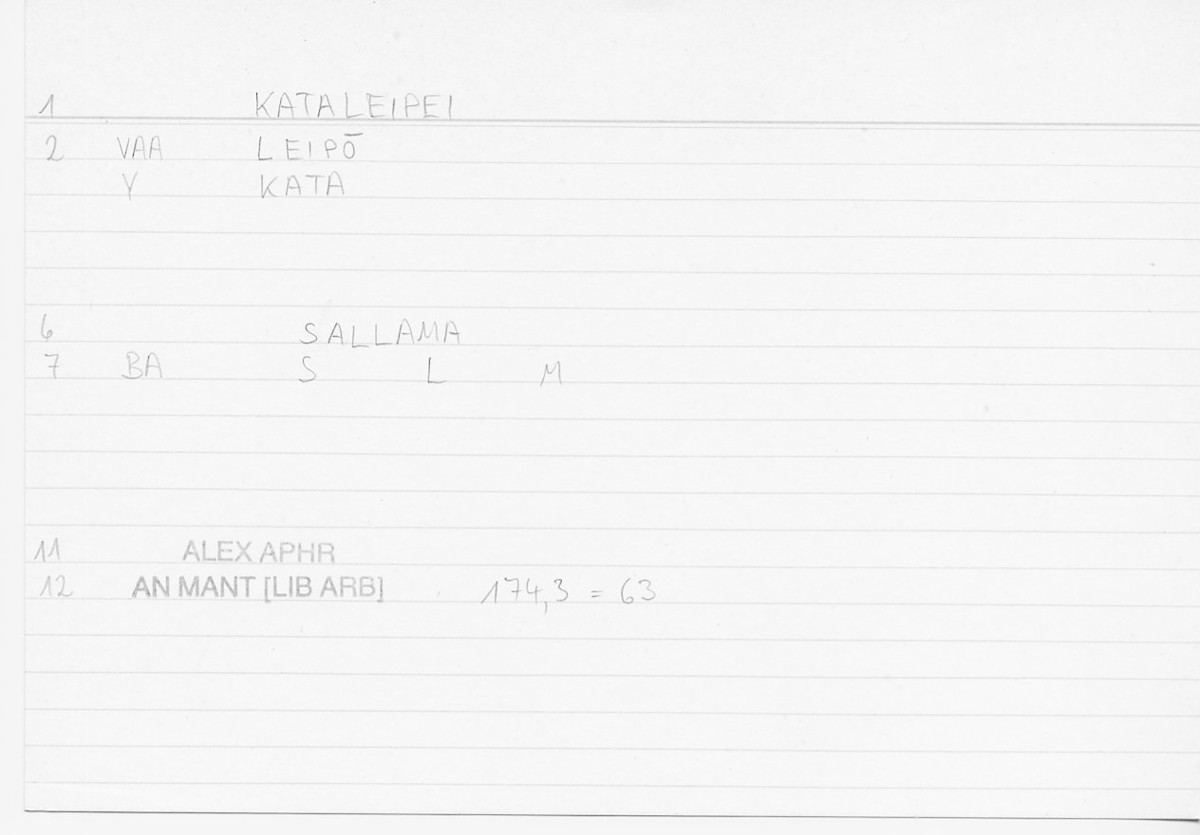 1 KATALEIPEI
2 VAA LEIPŌ
Y KATA
6 SALLAMA
7 BA S L M
11 ALEX APHR
12 AN MANT [LIB ARB] 174,3 = 63